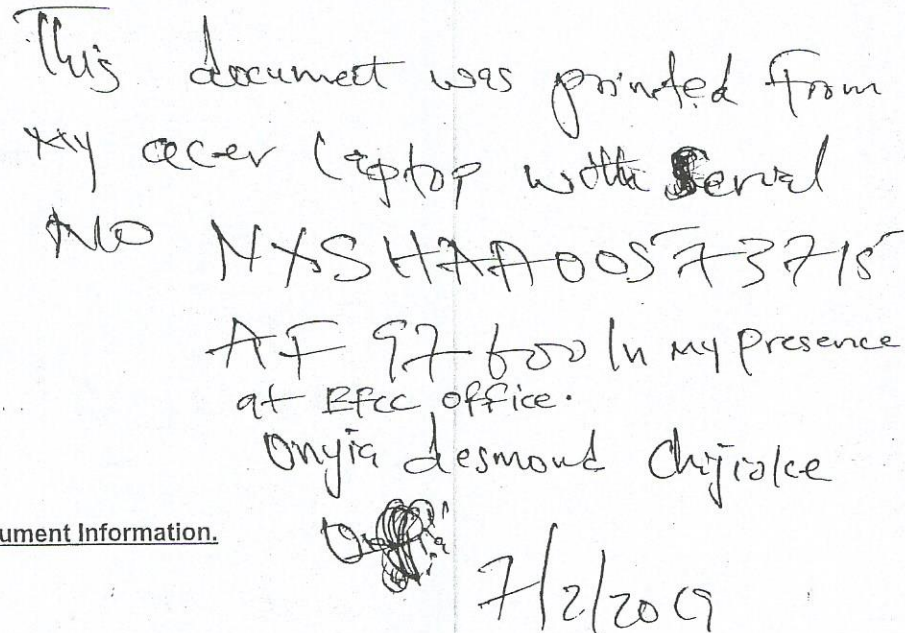 This document was printed from
my acer laptop with Serial
NO NXSHAAA00573715
AF97600 In my presence
at EFCC office.
Onyia desmond Chijioke
ument Information.
7/2/2019